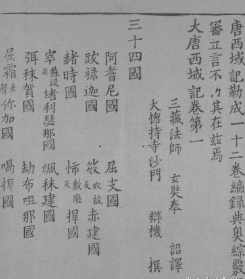 唐西域記勒成一十二卷編錄典奧綜覈
審立言不朽其在茲焉
大唐西域記卷第一
三藏法師 玄奘奉 詔譯
大惣持寺沙門 辯機 撰
三十四國
阿耆尼國 屈支國
跋祿迦國 笯奴故反赤建國
赭時國 㤄敷發反捍國
窣蘇沒反堵利瑟那國 颯秣建國
弭秣賀國 劫布呾那國
屈霜你迦國 喝捍國